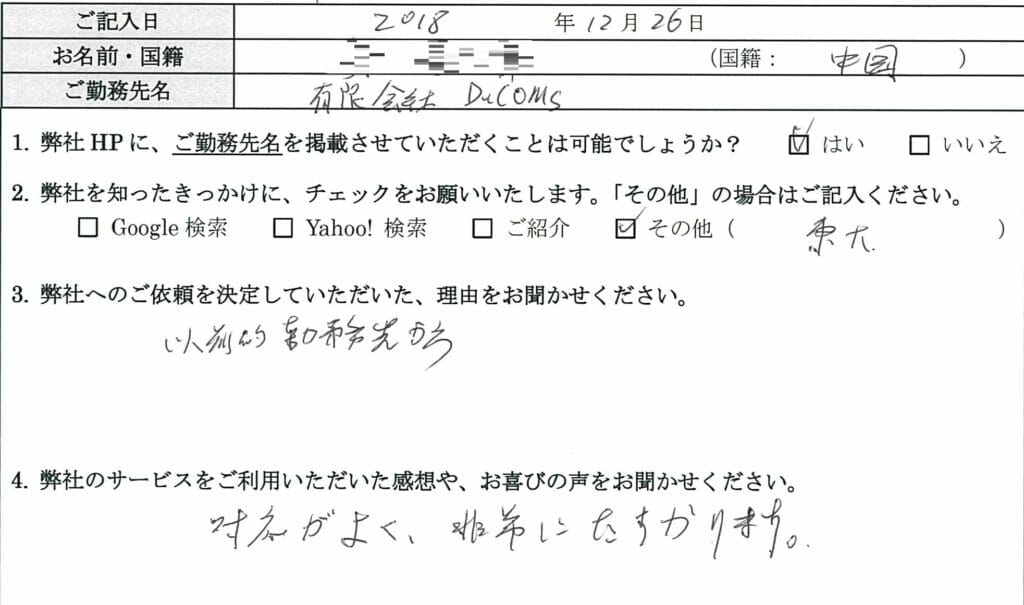 ご記入日 2018 年 12 月 26 日
お名前・国籍 (国籍: 中国 )
ご勤務先名 有限会社 DuCOMS
1. 弊社 HP に、ご勤務先名を掲載させていただくことは可能でしょうか? ☑ はい □ いいえ
2. 弊社を知ったきっかけに、チェックをお願いいたします。「その他」の場合はご記入ください。
□ Google 検索 □ Yahoo! 検索 □ ご紹介 ☑ その他 ( 東大 )
3. 弊社へのご依頼を決定していただいた、理由をお聞かせください。
以前的勤務先から
4. 弊社のサービスをご利用いただいた感想や、お喜びの声をお聞かせください。
対応がよく、非常にたすかります。